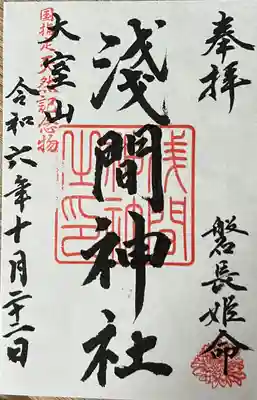 奉拝
磐長姫命
浅間神社
浅間神社之印
国指定天然記念物
大室山
令和六年十月二十二日